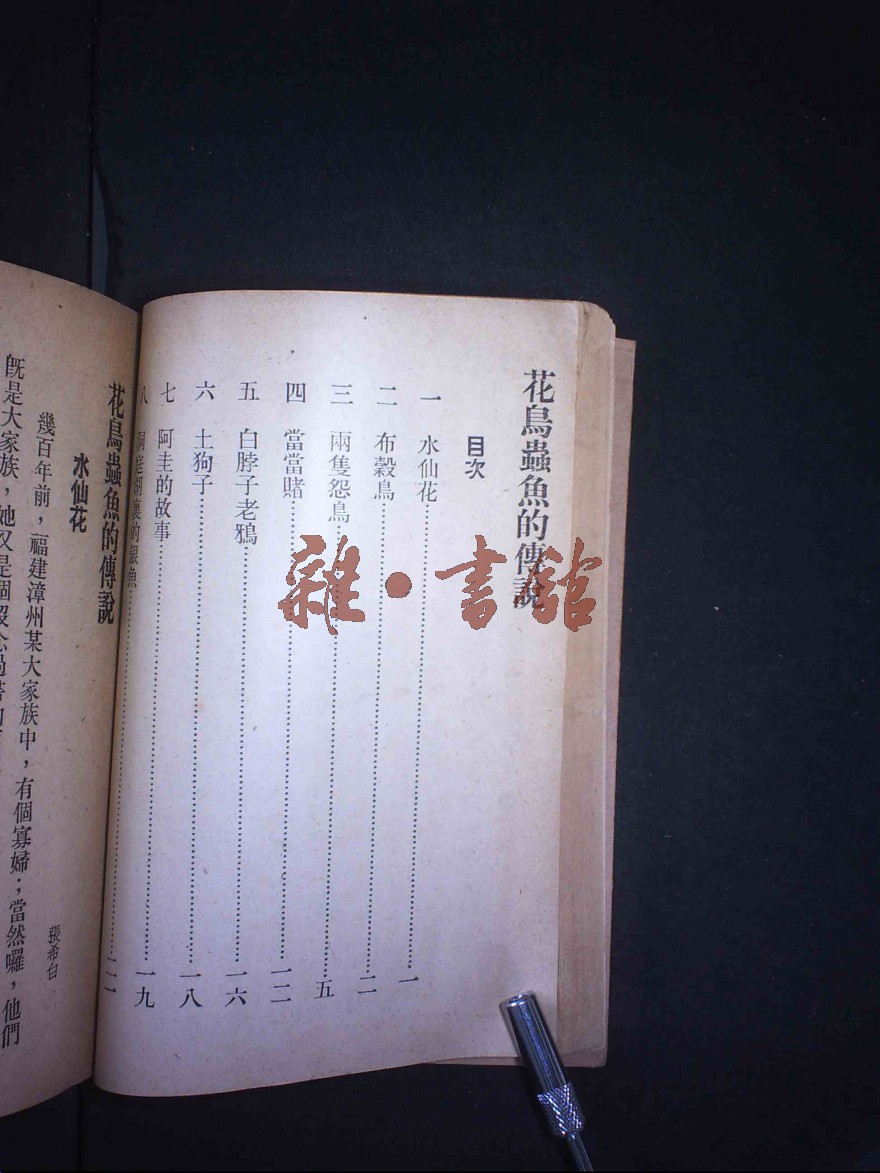 花鳥蟲魚的傳說
目次
一 水仙花……一
二 布穀鳥……二
三 兩隻怨鳥……五
四 當當賭……一二
五 白脖子老鴉……一六
六 土狗子……一八
七 阿圭的故事……一九
八 洞庭湖裏的銀魚……二二
雜·書館
花鳥蟲魚的傳說
水仙花
張希白
幾百年前，福建漳州某大家族中，有個寡婦；當然囉，他們
既是大家族，她又是個